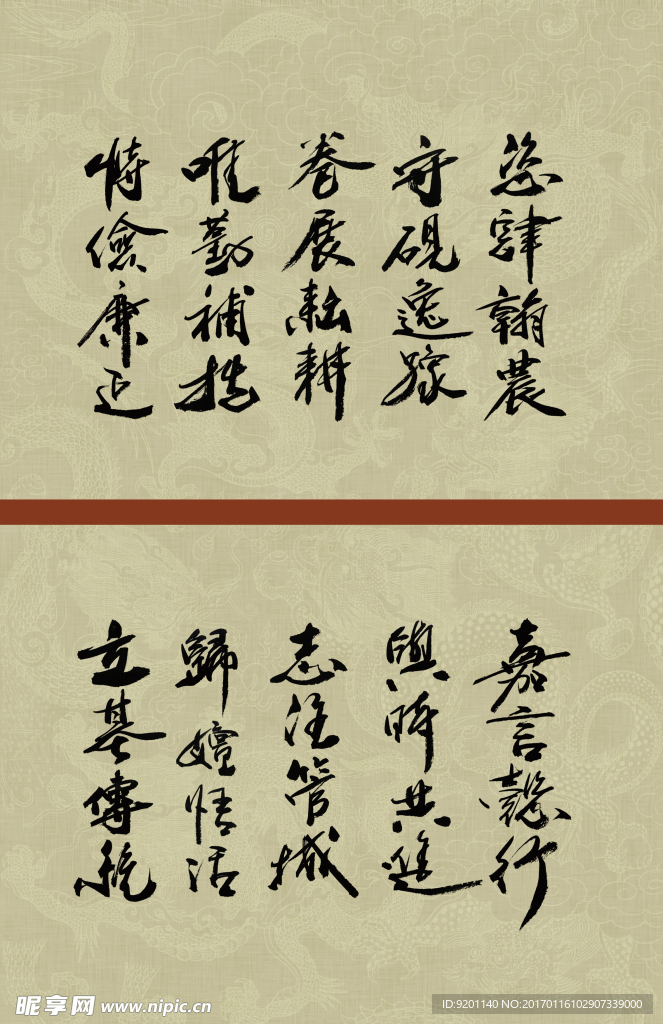 恣肆翰農
守硯逸稼
卷展耘耕
唯勤補拙
恃儉廉正
嘉言懿行
與時共進
志注管城
歸嬗悟活
立基傳統
昵享网 www.nipic.cn
ID:9201140 NO:20170116102907339000